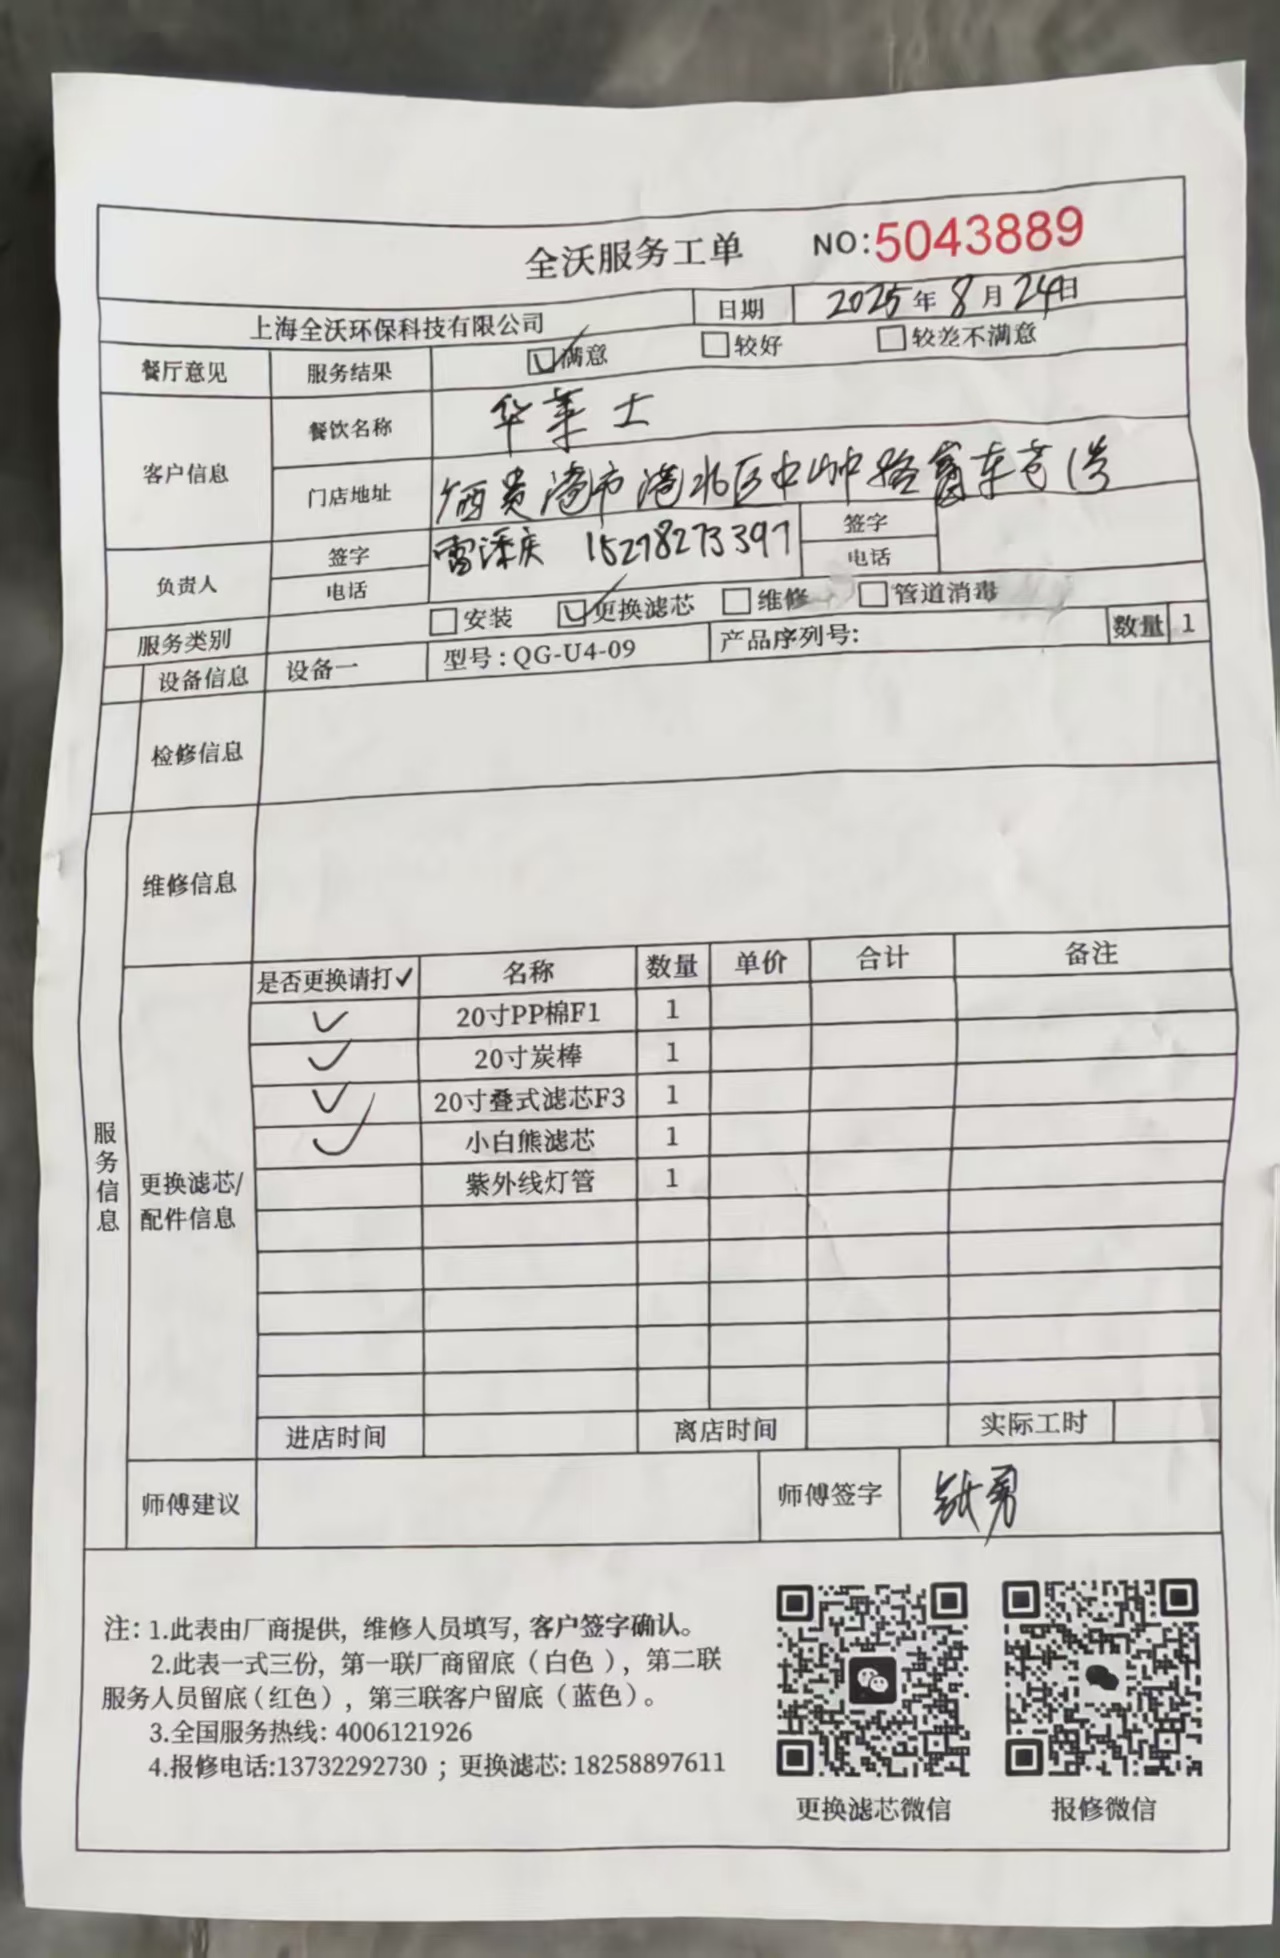 全沃服务工单 NO:5043889
上海全沃环保科技有限公司 日期 2025年8月24日
餐厅意见 服务结果 满意 较好 较差不满意
客户信息 餐饮名称 华莱士
门店地址 西贵港市港北区中山中路富车 1号
负责人 签字 电话 雷 庆 15278273397 签字 电话
服务类别 安装 更换滤芯 维修 管道消毒
设备信息 设备一 型号:QG-U4-09 产品序列号: 数量 1
检修信息
维修信息
服务信息
更换滤芯/配件信息
是否更换请打✓ 名称 数量 单价 合计 备注
✓ 20寸PP棉F1 1
✓ 20寸炭棒 1
✓ 20寸叠式滤芯F3 1
✓ 小白熊滤芯 1
紫外线灯管 1
进店时间 离店时间 实际工时
师傅建议 师傅签字 勇
注: 1.此表由厂商提供, 维修人员填写, 客户签字确认。
2.此表一式三份, 第一联厂商留底(白色), 第二联
服务人员留底(红色), 第三联客户留底(蓝色)。
3.全国服务热线: 4006121926
4.报修电话:13732292730 ; 更换滤芯: 18258897611
更换滤芯微信 报修微信